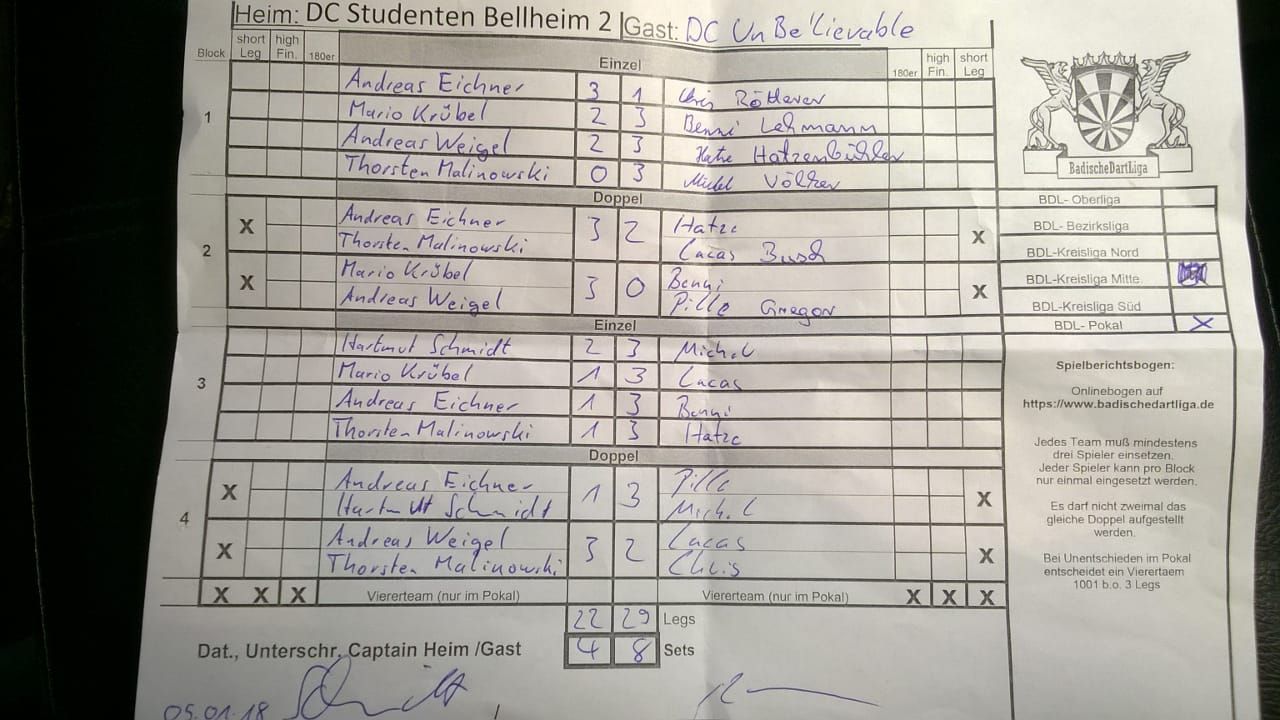 Heim: DC Studenten Bellheim 2 Gast: DC UnBe'lievable
Block short Leg high Fin. 180er Einzel 180er high Fin. short Leg
1
Andreas Eichner 3 1 Chris
Mario Krübel 2 3 Benni Lehmann
Andreas Weigel 2 3 Hatze Hatzenbühler
Thorsten Malinowski 0 3 Michel Völker
Doppel
2
X Andreas Eichner 3 2 Hatze X
Thorsten Malinowski Lucas Busch
X Mario Krübel 3 0 Benni X
Andreas Weigel Pille Gregor
Einzel
3
Hartmut Schmidt 2 3 Michel
Mario Krübel 1 3 Lucas
Andreas Eichner 1 3 Benni
Thorsten Malinowski 1 3 Hatze
Doppel
4
X Andreas Eichner 1 3 Pille X
Hartmut Schmidt Michel
X Andreas Weigel 3 2 Lucas X
Thorsten Malinowski Chris
X X X Viererteam (nur im Pokal) Viererteam (nur im Pokal) X X X
22 29 Legs
Dat., Unterschr, Captain Heim /Gast 4 8 Sets
05.01.18
BadischeDartLiga
BDL- Oberliga
BDL- Bezirksliga
BDL-Kreisliga Nord
BDL-Kreisliga Mitte
BDL-Kreisliga Süd
BDL- Pokal X
Spielberichtsbogen:
Onlinebogen auf
https://www.badischedartliga.de
Jedes Team muß mindestens
drei Spieler einsetzen.
Jeder Spieler kann pro Block
nur einmal eingesetzt werden.
Es darf nicht zweimal das
gleiche Doppel aufgestellt
werden.
Bei Unentschieden im Pokal
entscheidet ein Vierertaem
1001 b.o. 3 Legs